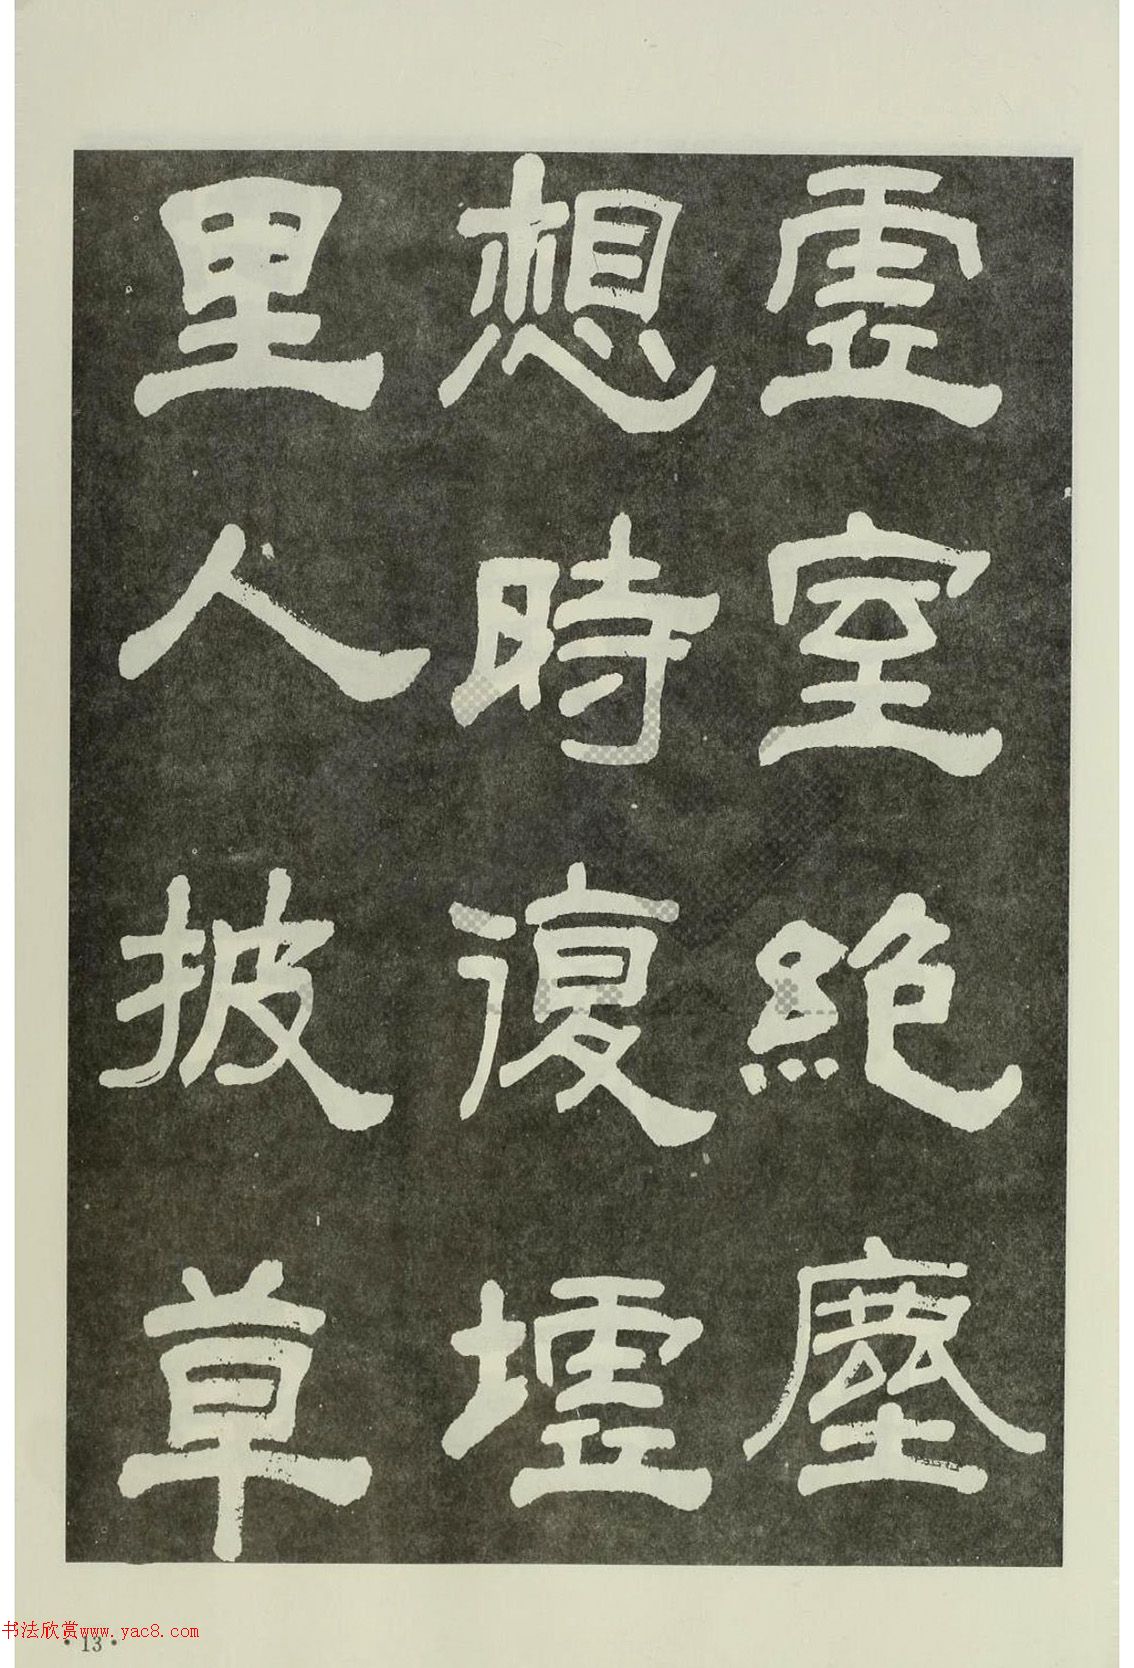 虛室絶塵
想時復墟
里人披草
书法欣赏www.yac8.com
·13·